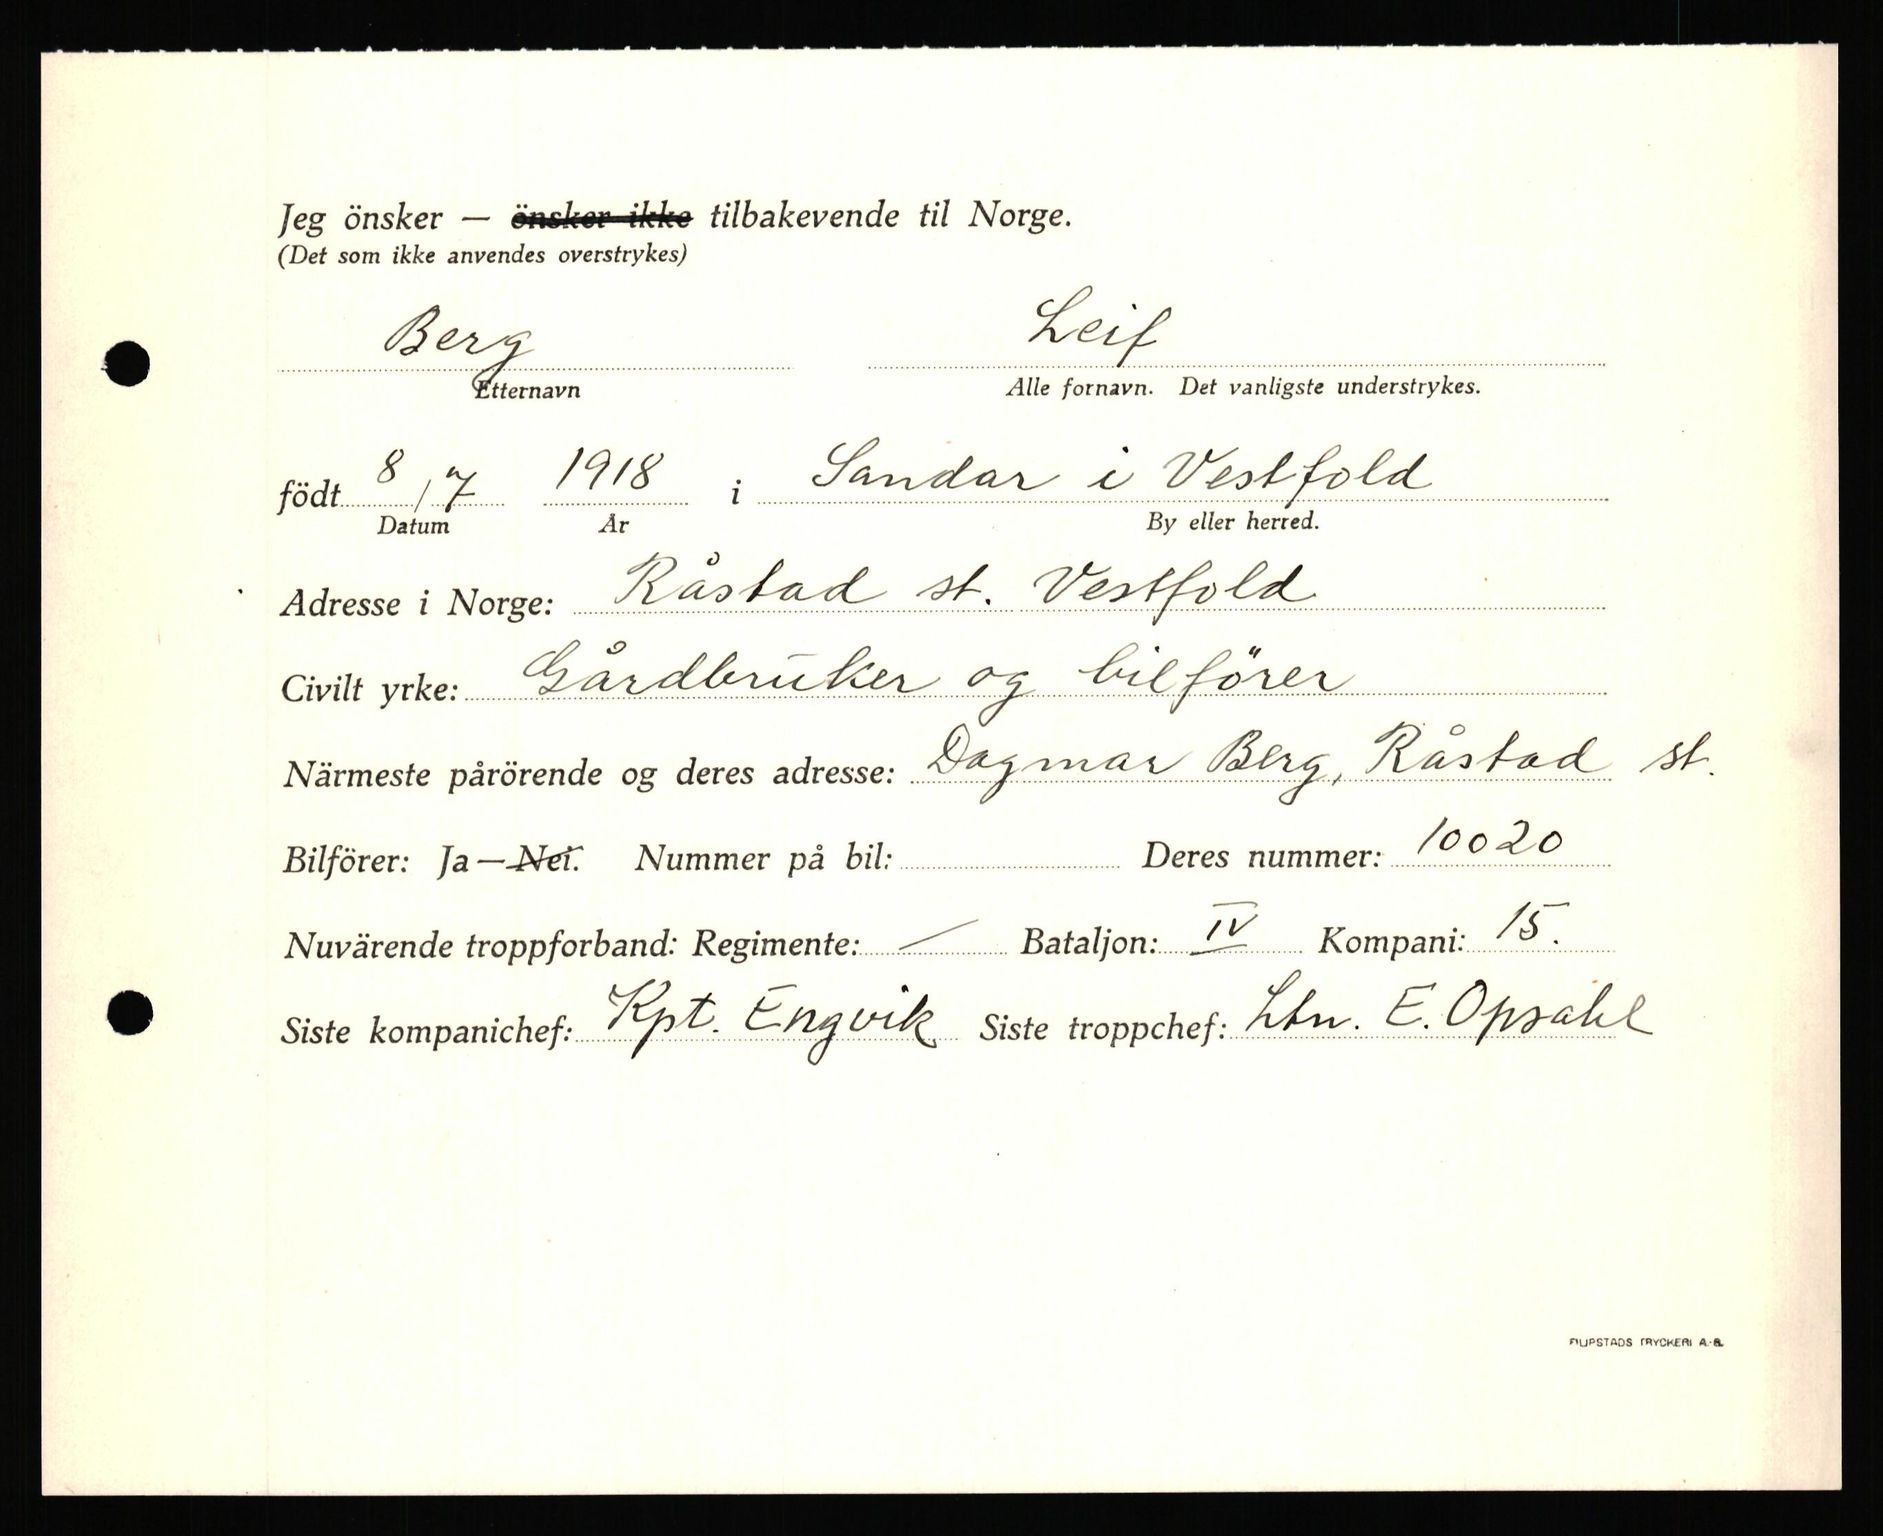 Jeg önsker — önsker ikke tilbakevende til Norge.
(Det som ikke anvendes overstrykes)
Berg Leif
Etternavn Alle fornavn. Det vanligste understrykes.
födt 8/7 1918 i Sandar i Vestfold
Datum År By eller herred.
Adresse i Norge: Råstad st. Vestfold
Civilt yrke: Gårdbruker og bilförer
Närmeste pårörende og deres adresse: Dagmar Berg, Råstad st.
Bilförer: Ja — Nei. Nummer på bil: Deres nummer: 10020
Nuvärende troppforband: Regimente: — Bataljon: IV Kompani: 15.
Siste kompanichef: Kpt. Engvik Siste troppchef: Ltn. E. Opsahl
FILIPSTADS TRYCKERI A.-B.